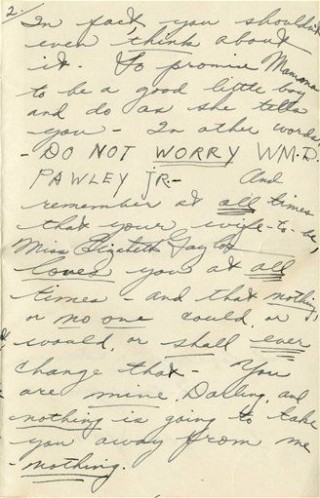 2.
In fact, you shouldn't
even think about
it. So promise Mamma
to be a good little boy
and do as she tells
you - In other words
- DO NOT WORRY WM. D.
PAWLEY JR. - And
remember at all times
that your wife-to-be,
Miss Elizabeth Taylor
loves you at all
times - and that nothing,
or no one could, or
would, or shall ever
change that - You
are mine, Darling, and
nothing is going to take
you away from me
- nothing.